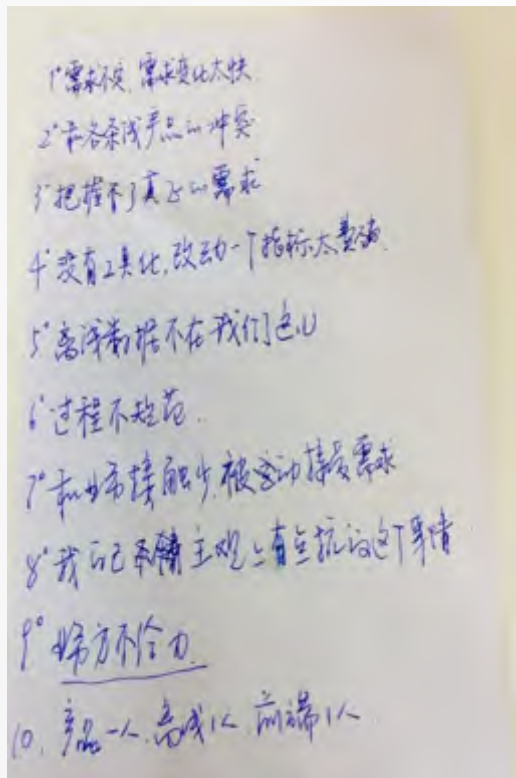 1° 需求不定, 需求变化太快
2° 和各条线产品的冲突
3° 把握不了真正的需求
4° 没有工具化, 改动一个指标太费劲.
5° 离线数据不在我们这儿
6° 过程不规范.
7° 和业务接触少, 被动接受需求
8° 我自己 主观上有点抗议这个事情
9° 业务方不给力
10. 产品一人, 离线1人, 前端1人